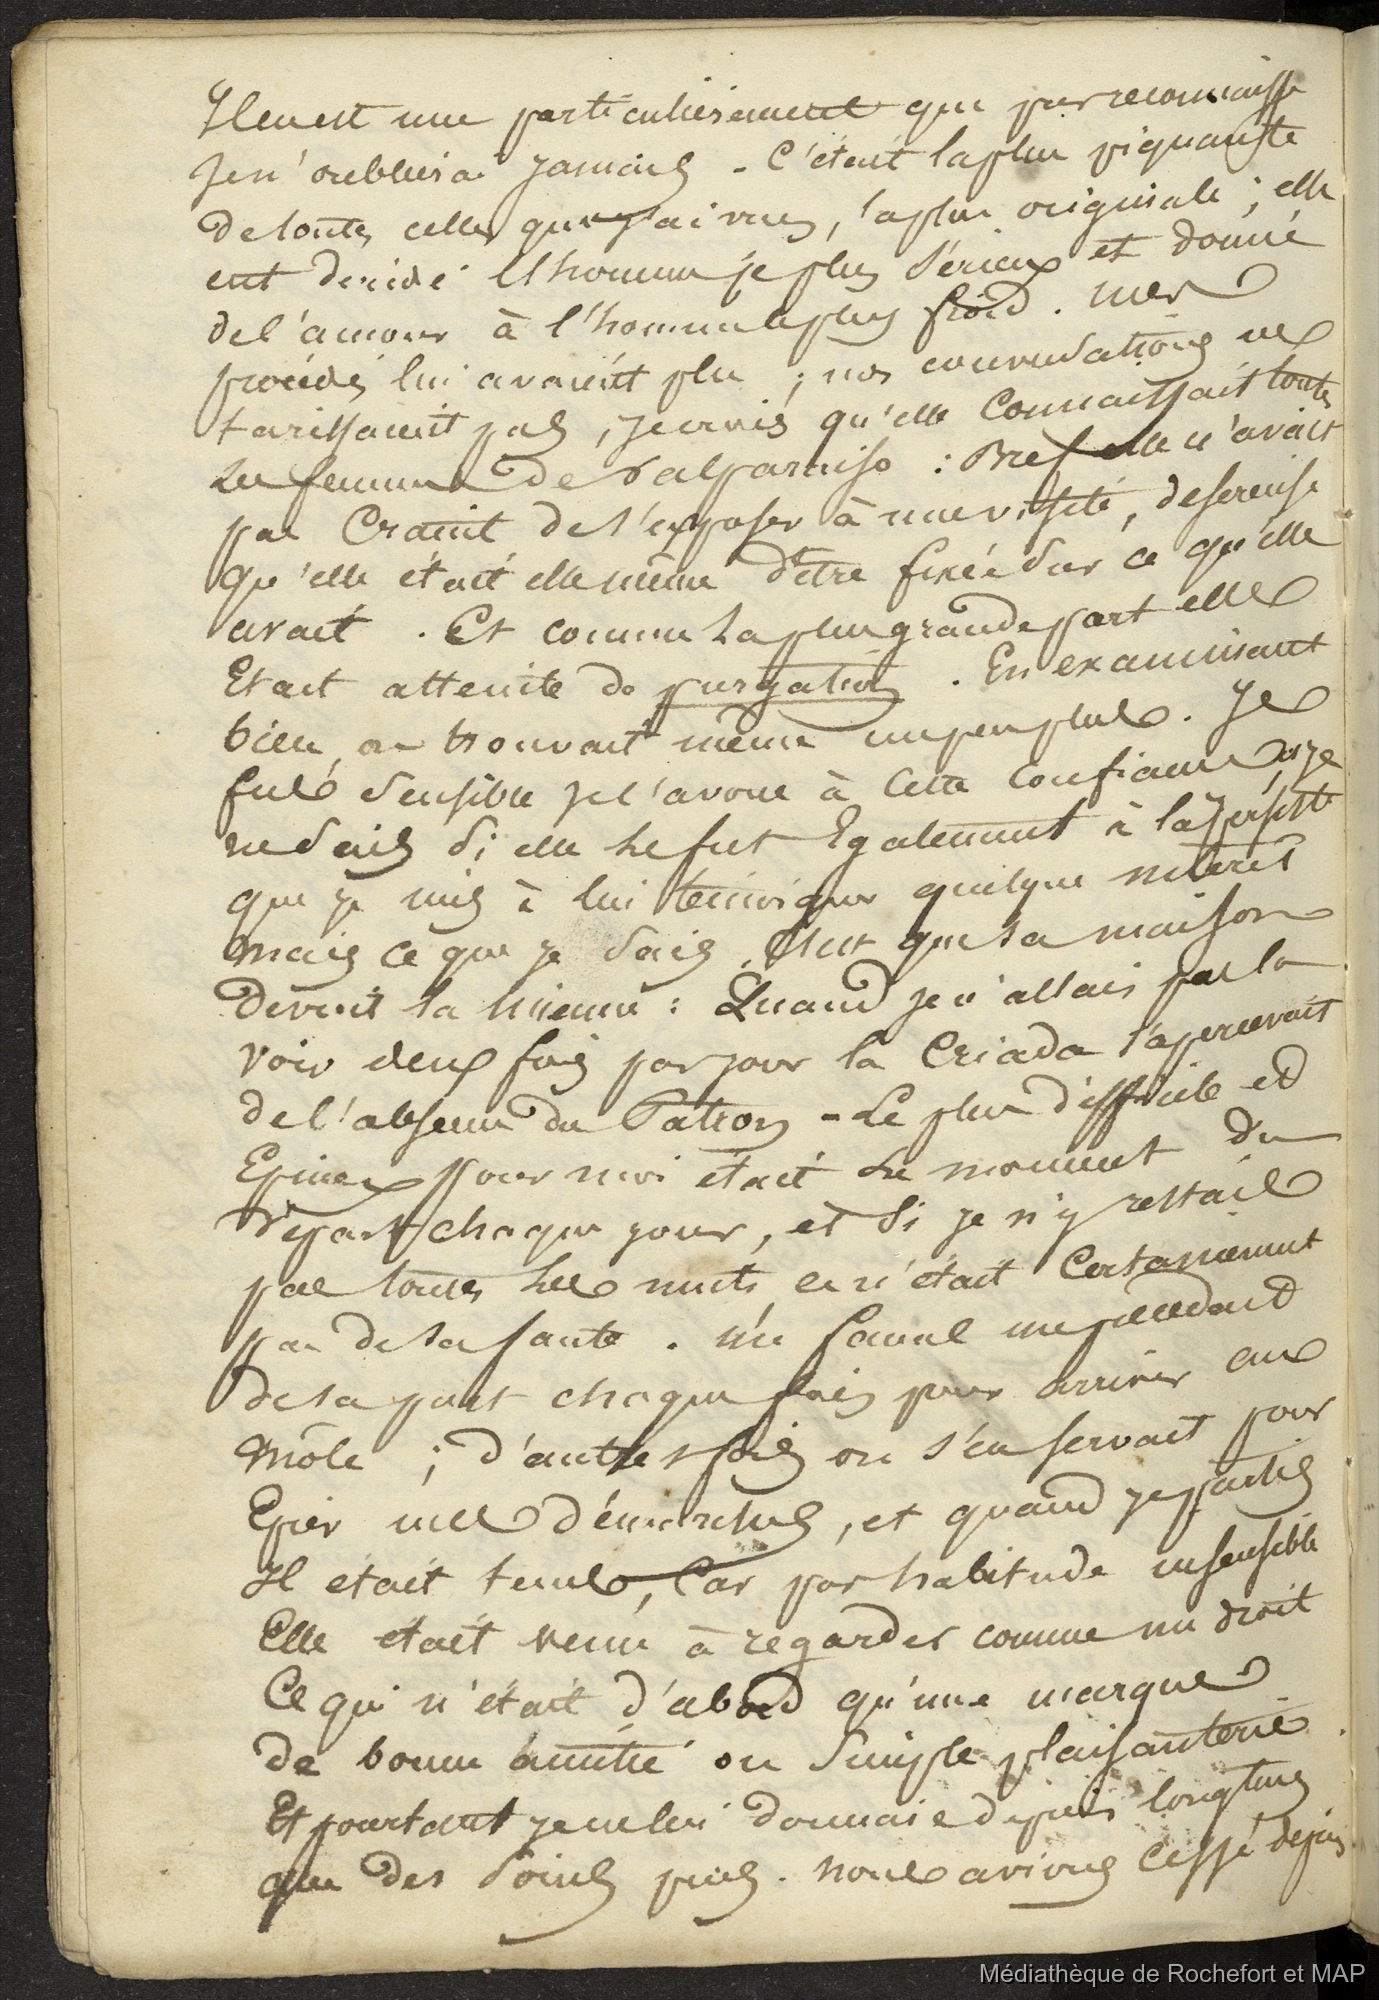 Il en est une particulièrement que par reconnaissce
Je n'oublierai jamais - C'était la plus piquante
de toutes celles que j'ai vues, la plus originale ; elle
eut deridé l'homme le plus sérieux et donné
de l'amour à l'homme le plus froid. mes
procédés lui avaient plu ; nos conversations ne
tarissaient pas, je crois qu'elle connaissait toutes
les femmes de Valparaiso : Bref elle n'avait
pas craint de s'exposer à une visite, desireuse
qu'elle était elle même d'être fixée sur ce qu'elle
avait. Et comme la plus grande part elle
Etait atteinte de purgation. En examinant
bien, on trouvait même un peu plus. Je
fus sensible je l'avoue à cette confiance, et je
ne sais si elle le fut Egalement à la
que je mis à lui temoigner quelque interêt
mais ce que je sais, c'est que sa maison
devint la mienne : Quand je n'allais pas la
voir deux fois par jour la Criada s'apercevait
de l'absence du Patron - Le plus difficile et
Epineux pour moi était le moment du
départ chaque jour, et si je n'y restais
pas toutes les nuits ce n'était certainement
pas de sa faute. Un fanal me
de sa part chaque fois pour arriver au
môle ; d'autres fois on s'en servait pour
Epier mes démarches, et quand je partais
Il était tenu, Car par habitude insensible
Elle était venu à regarder comme un droit
Ce qui n'était d'abord qu'une marque
de bonne amitié ou simple plaisanterie.
Et pourtant je ne lui donnais depuis longtems
que des soins . nous avions cessé depuis
Médiathèque de Rochefort et MAP